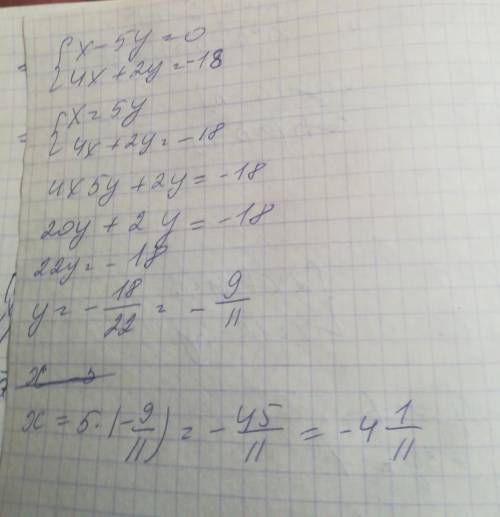 = { x - 5y = 0
4x + 2y = -18
= { x = 5y
4x + 2y = -18
4x5y + 2y = -18
20y + 2y = -18
22y = -18
y = - 18/22 = - 9/11
x =
x = 5·(-9/11) = - 45/11 = -4 1/11